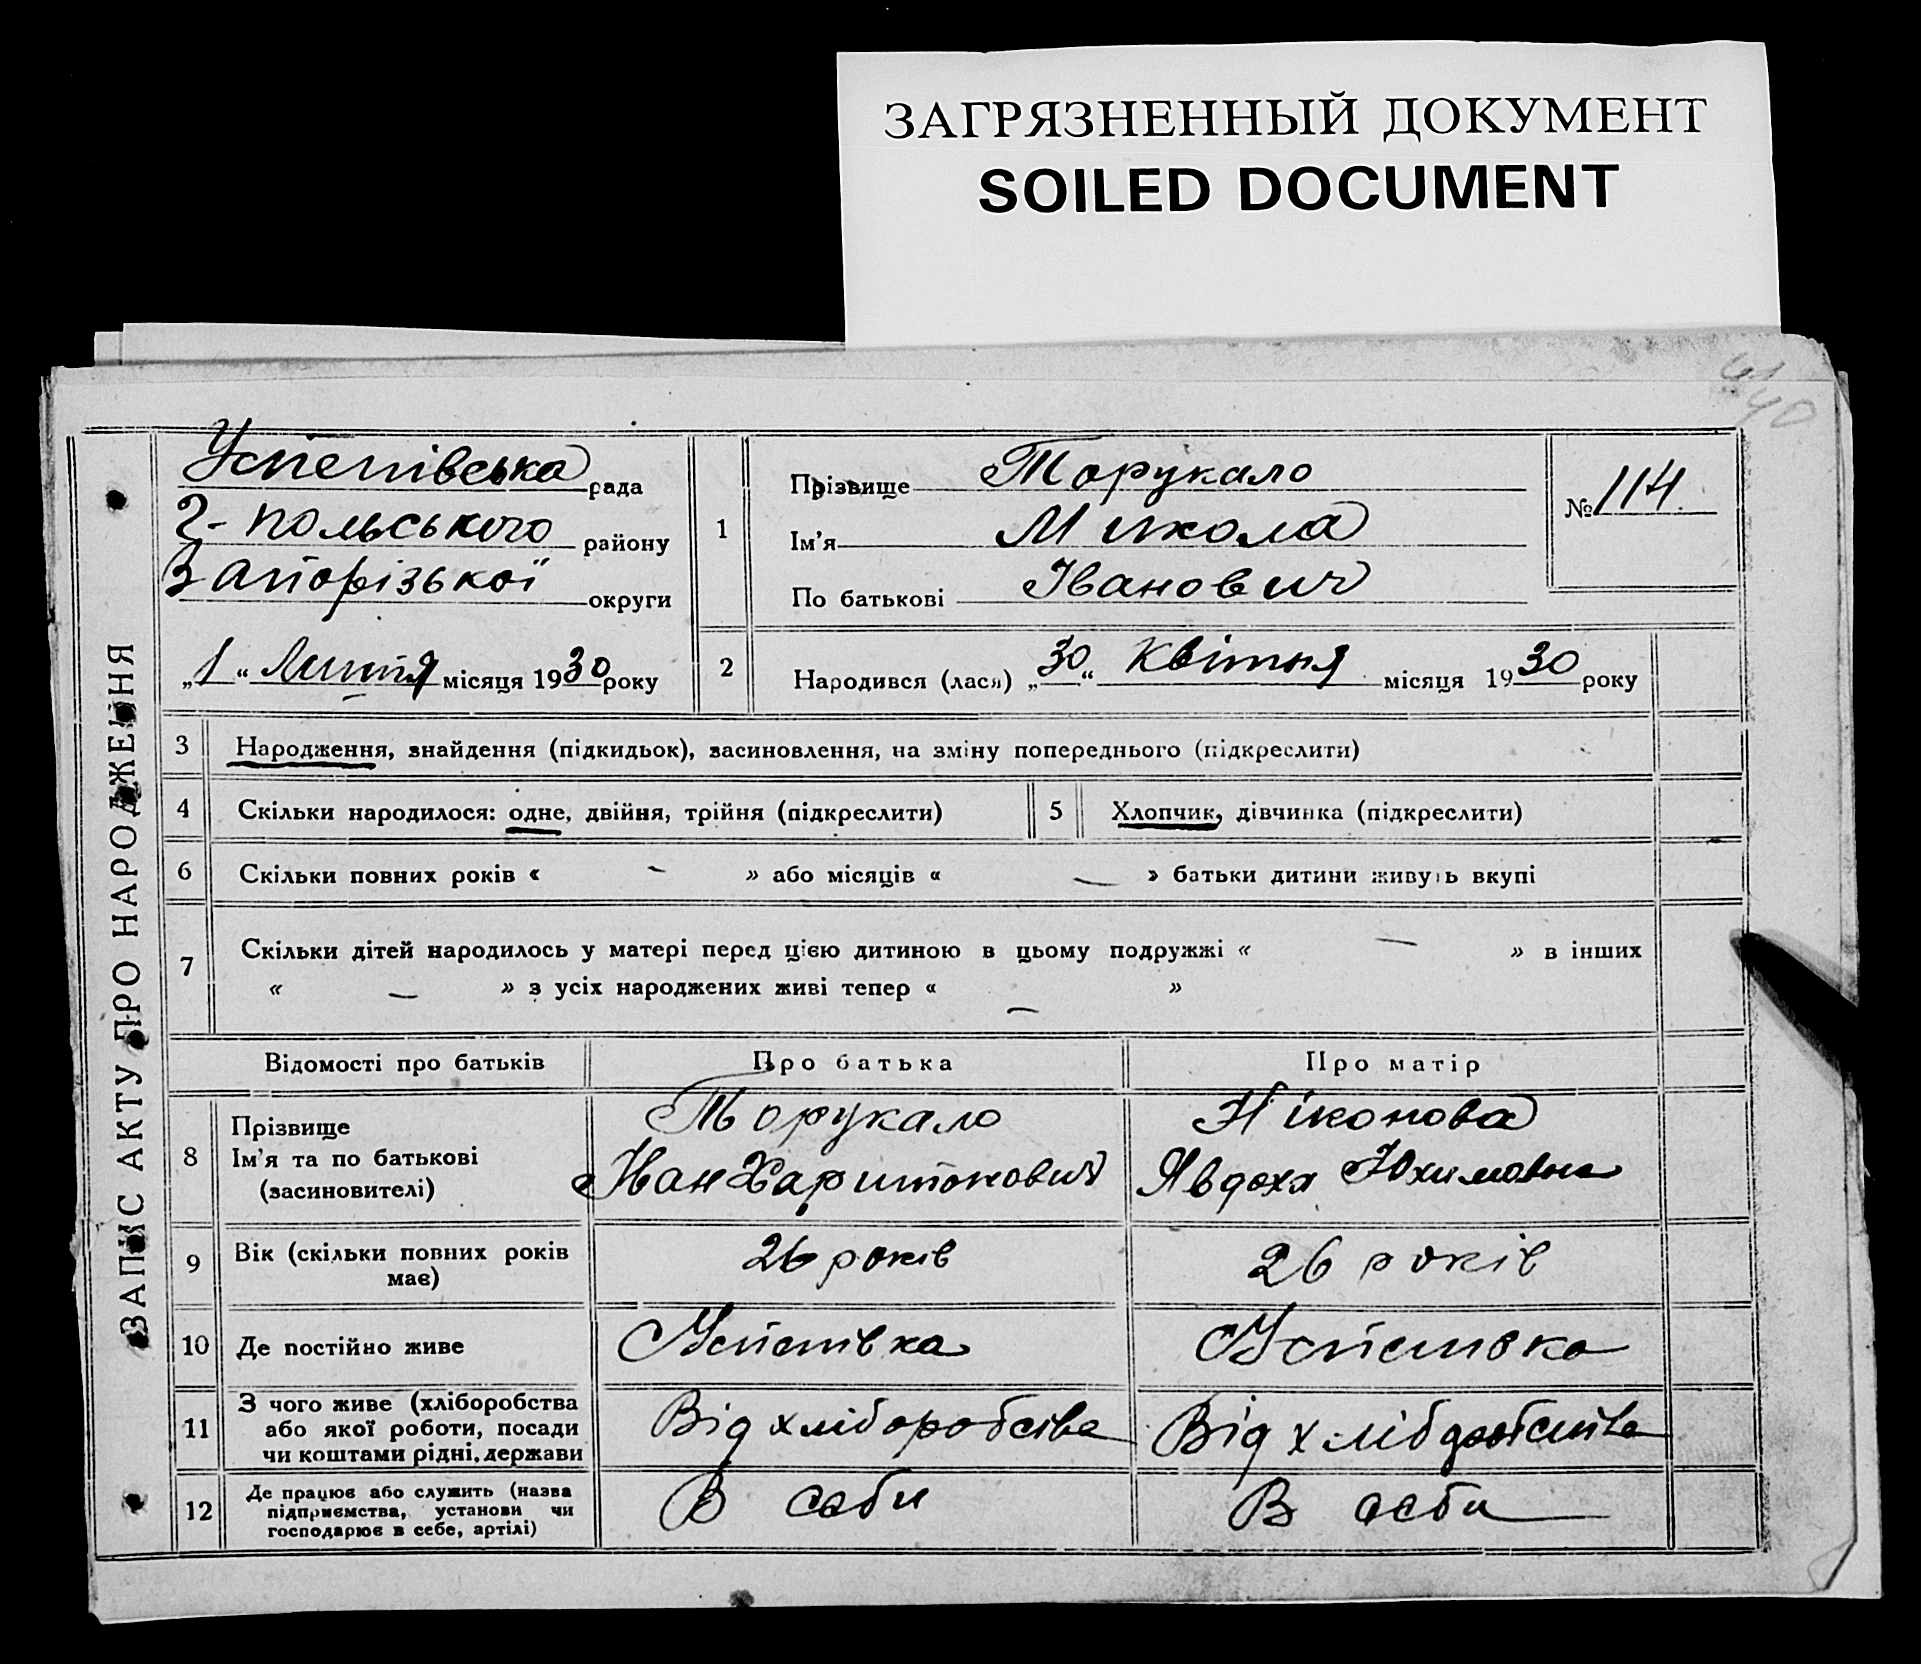 ЗАГРЯЗНЕННЫЙ ДОКУМЕНТ
SOILED DOCUMENT
ЗАПИС АКТУ ПРО НАРОДЖЕННЯ
Успенівська рада
Г-польського району
Запорізької округи
„1“ Липня місяця 1930 року
1
Прізвище Торукало
Ім'я Микола
По батькові Іванович
№ 114.
2 Народився (лася) „30“ Квітня місяця 1930 року
3 Народження, знайдення (підкидьок), засиновлення, на зміну попереднього (підкреслити)
4 Скільки народилося: одне, двійня, трійня (підкреслити) 5 Хлопчик, дівчинка (підкреслити)
6 Скільки повних років « — » або місяців « — » батьки дитини живуть вкупі
7 Скільки дітей народилось у матері перед цією дитиною в цьому подружжі « — » в інших
« — » з усіх народжених живі тепер « — »
Відомості про батьків Про батька Про матір
8 Прізвище
Ім'я та по батькові
(засиновителі)
Торукало
Іван Харитонович
Ніконова
Явдоха Юхимовна
9 Вік (скільки повних років
має)
26 років 26 років
10 Де постійно живе Успенівка Успенівка
11 З чого живе (хліборобства
або якої роботи, посади
чи коштами рідні, держави
Від хліборобства Від хлібробства
12 Де працює або служить (назва
підприємства, установи чи
господарює в себе, артілі)
В себи В себи